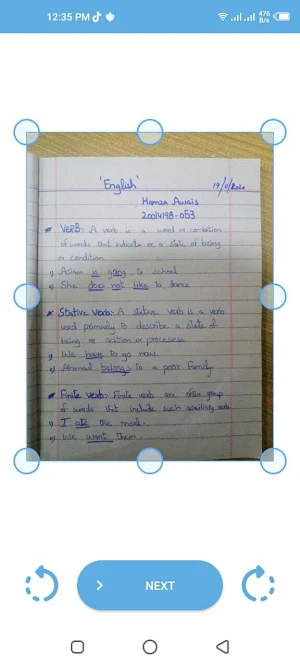 12:35 PM
476 B/s
'English'
19/11/2020
Hamza Awais
20014198-053
* VERB:- A verb is a word or combation
of words that indicate or a state of being
or condition.
i) Asham is going to school
ii) She does not like to dance
* Stative verb:- A stative verb is a verb
used primarily to describe a state of
being or scition or processess
i) We have to go now.
ii) Ahamad belongs to a poor family
* Finite verb:- Finite verb are often group
of words that include such verb
i) I ate the meal.
ii) We want them.
NEXT